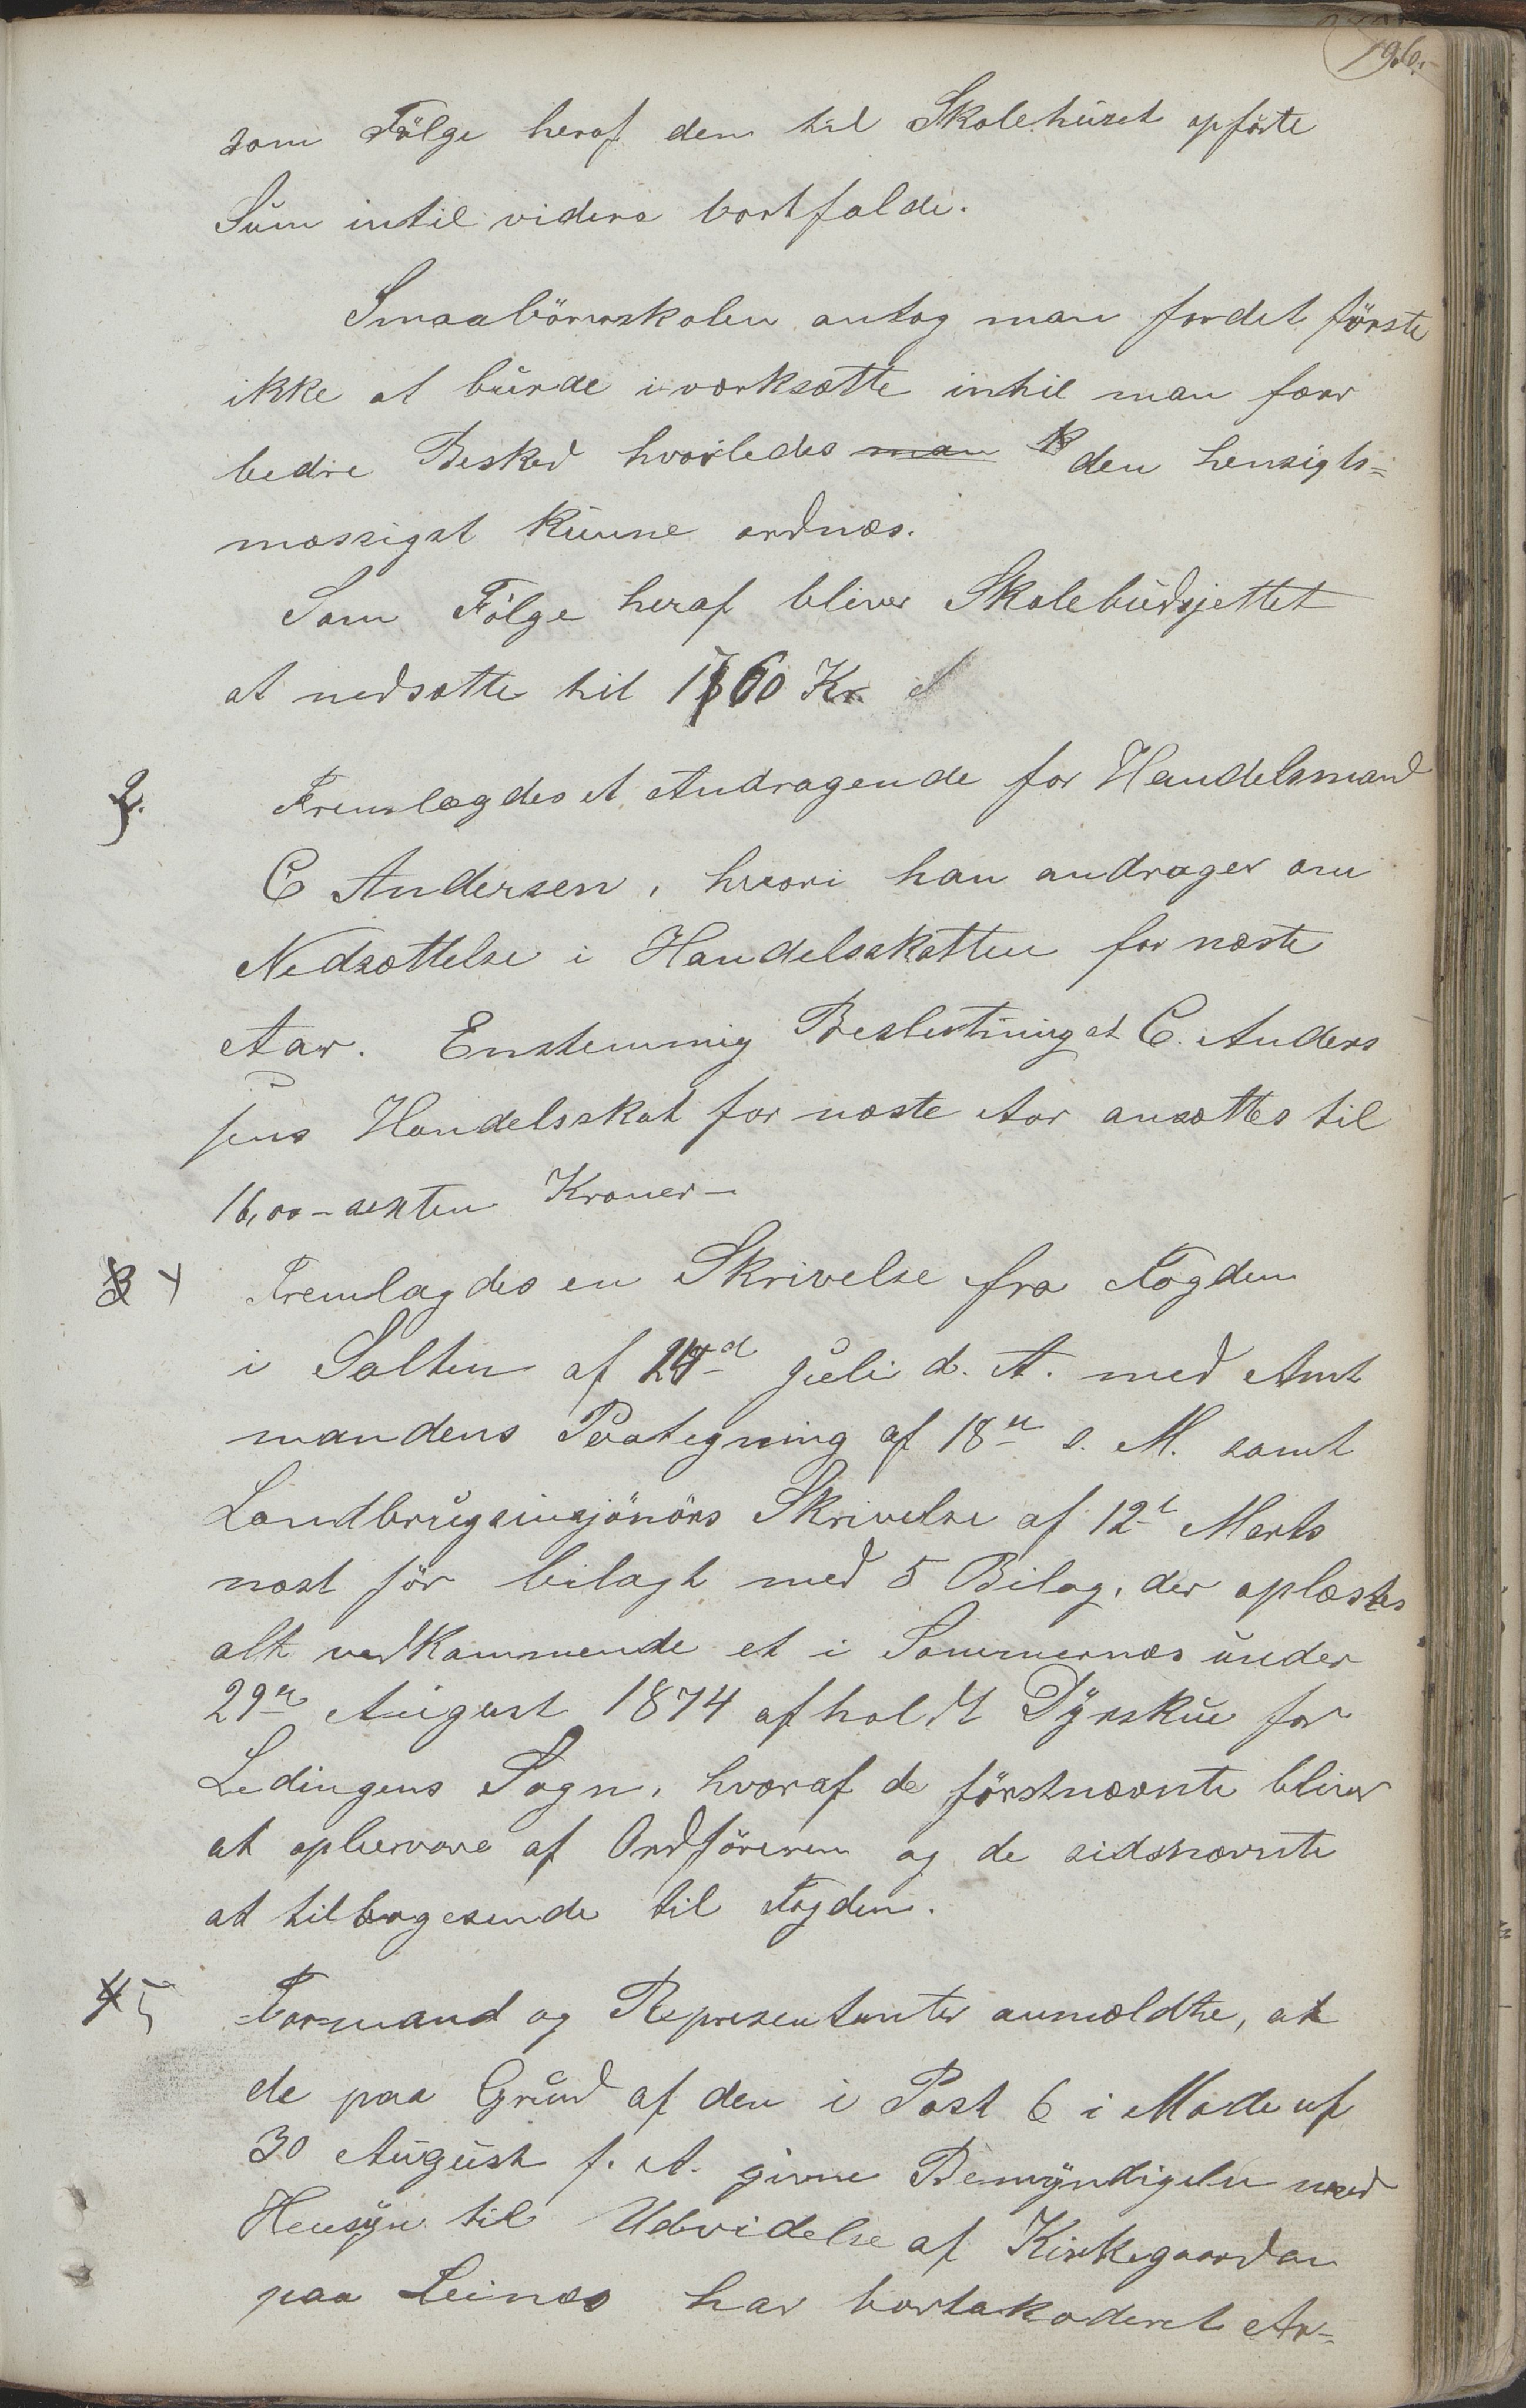 196.
som Fölge heraf den til Skolehuset opförte
Sum intil videre bortfalde.
Smaabörnsskolen antog man fordet förste
ikke at burde iværksætte intil man faar
bedre Besked hvorledes man den hensigts=
mæssigst kunne ordnæs.
Som Fölge heraf bliver Skolebudsjettet
at nedsætte til 1760 Kr.
Fremlægdes et Andragende for Handelsmand
C Andersen, hvori han andrager om
Nedsættelse i Handelsskatten for næste
Aar. Enstemmig Beslutning at C. Anders
sens Handelsskat for næste Aar ansættes til
16,00 – sexten Kroner –
3 4 Fremlagdes en Skrivelse fra Fogden
i Salten af 24d Juli d. A. med Amt
mandens Paategning af 18de s. M. samt
Landbrugsinsjönörs Skrivelse af 12t Marts
næst för bilagt med 5 Bilag, der oplæstes
alt vedkommende et i Sommernæs under
29de August 1874 afholdt Dyrskue for
Lødingens Sogn, hvoraf de förstnævnte bliver
at opbevare af Ordföreren og de sidsnævnte
at tilbagesende til Fogden.
4 5 Formand og Representanter anmældte, at
de paa Grund af den i Post 6 i Møde af
30 August f. A. givne Bemyndigelse med
Hensyn til Udvidelse af Kirkegaarden
paa Leines har bortakoderet Ar=